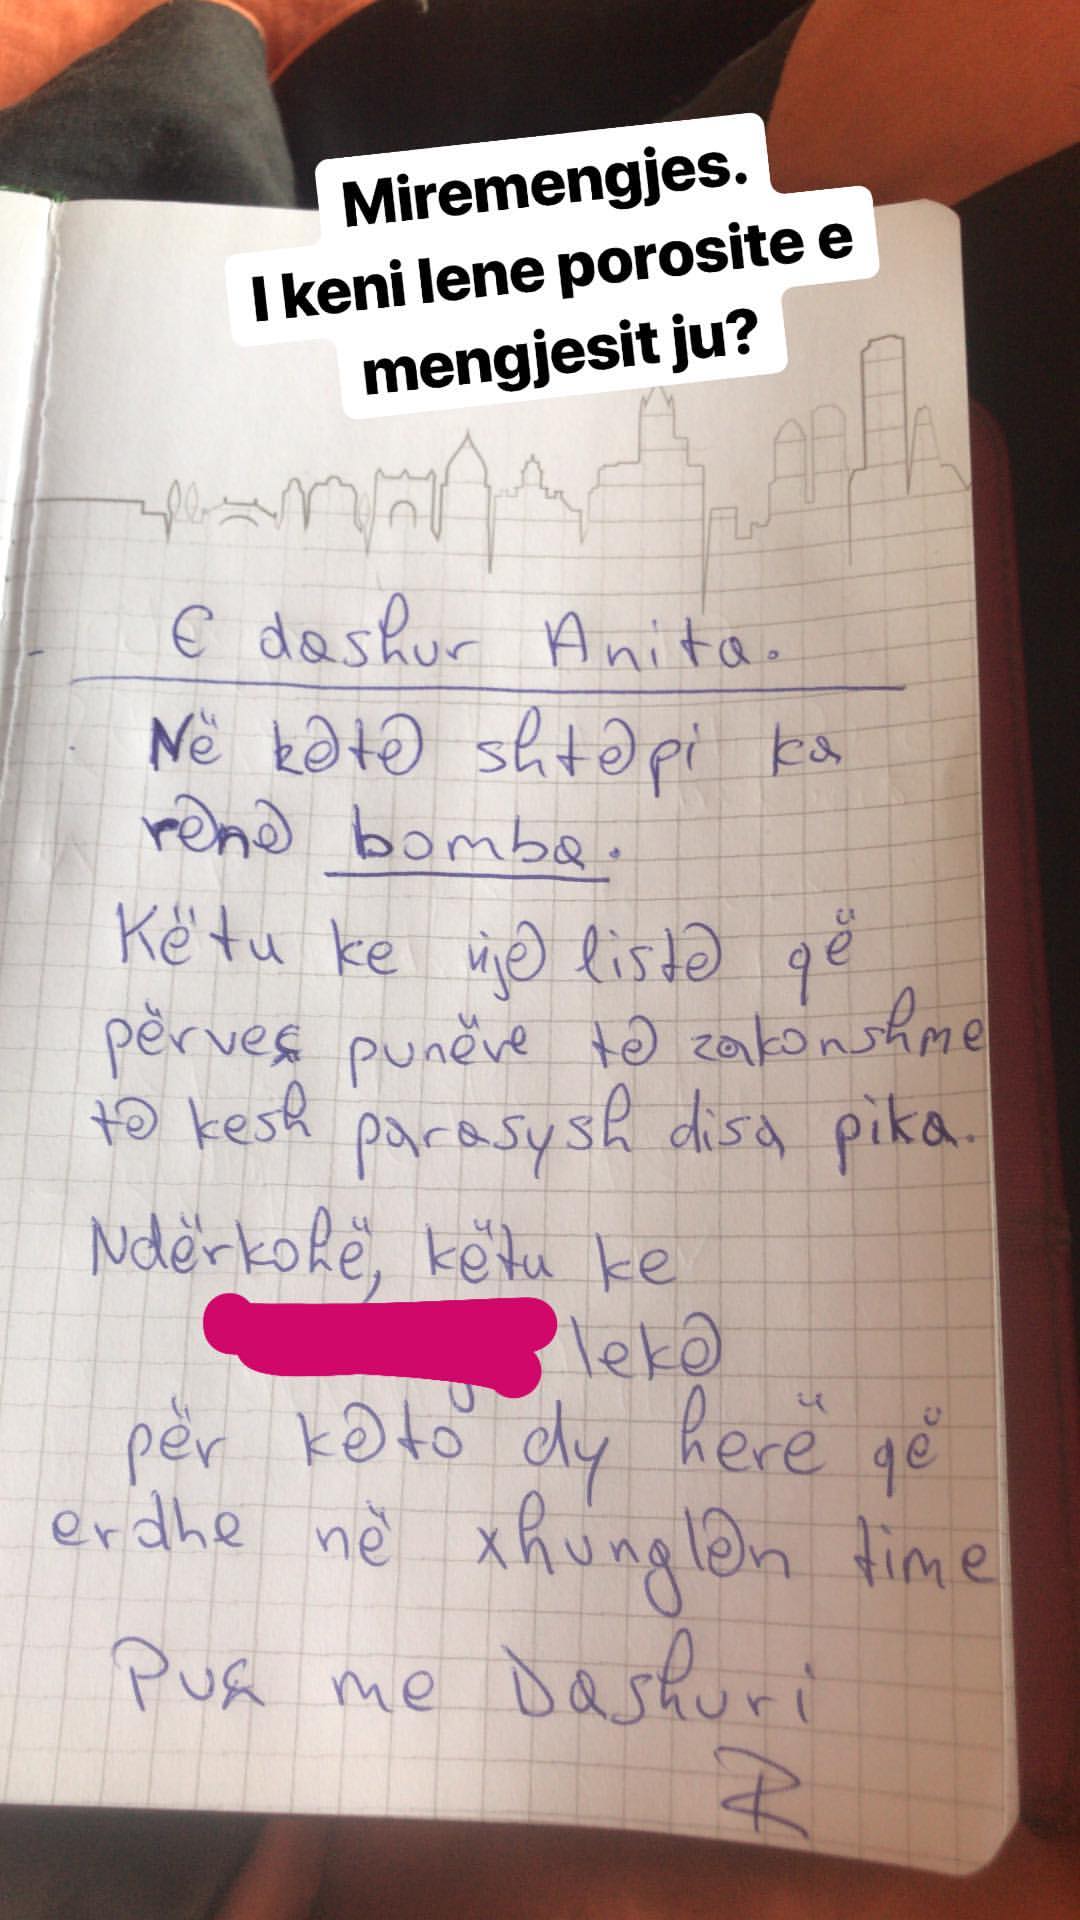 Miremengjes.
I keni lene porosite e
mengjesit ju?
E dashur Anita.
Në këtë shtëpi ka
rënë bomba.
Këtu ke një listë që
përveç punëve të zakonshme
të kesh parasysh disa pika.
Ndërkohë, këtu ke
lekë
për këto dy herë që
erdhe në xhunglën time
Puç me Dashuri
R